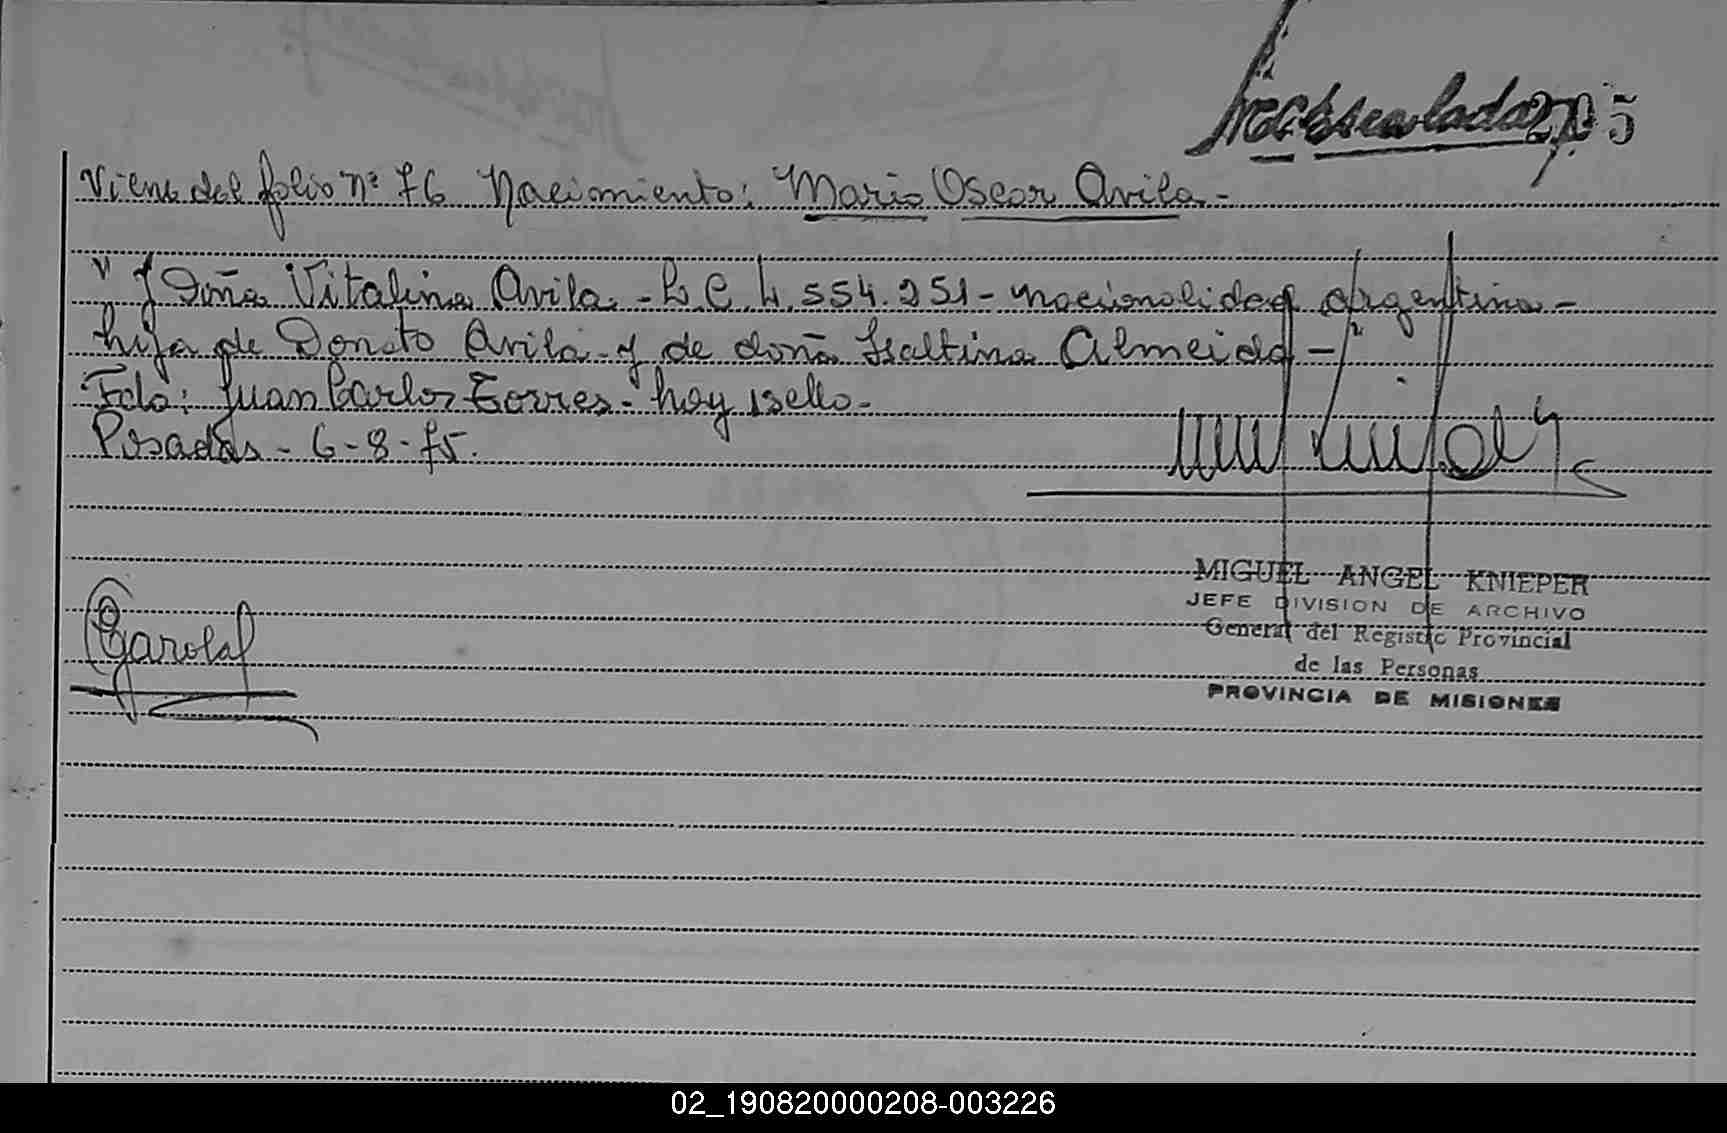 205
Viene del folio nº 76 Nacimiento: Mario Oscar Avila.-
" y Doña Vitalina Avila - L.C. 4.554.251 - nacionalidad argentina -
hija de Donato Avila - y de doña Isaltina Almeida -
Fdo: Juan Carlos Torres - hay sello -
Posadas - 6-8-75.
MIGUEL ANGEL KNIEPER
JEFE DIVISION DE ARCHIVO
General del Registro Provincial
de las Personas
PROVINCIA DE MISIONES
02_190820000208-003226